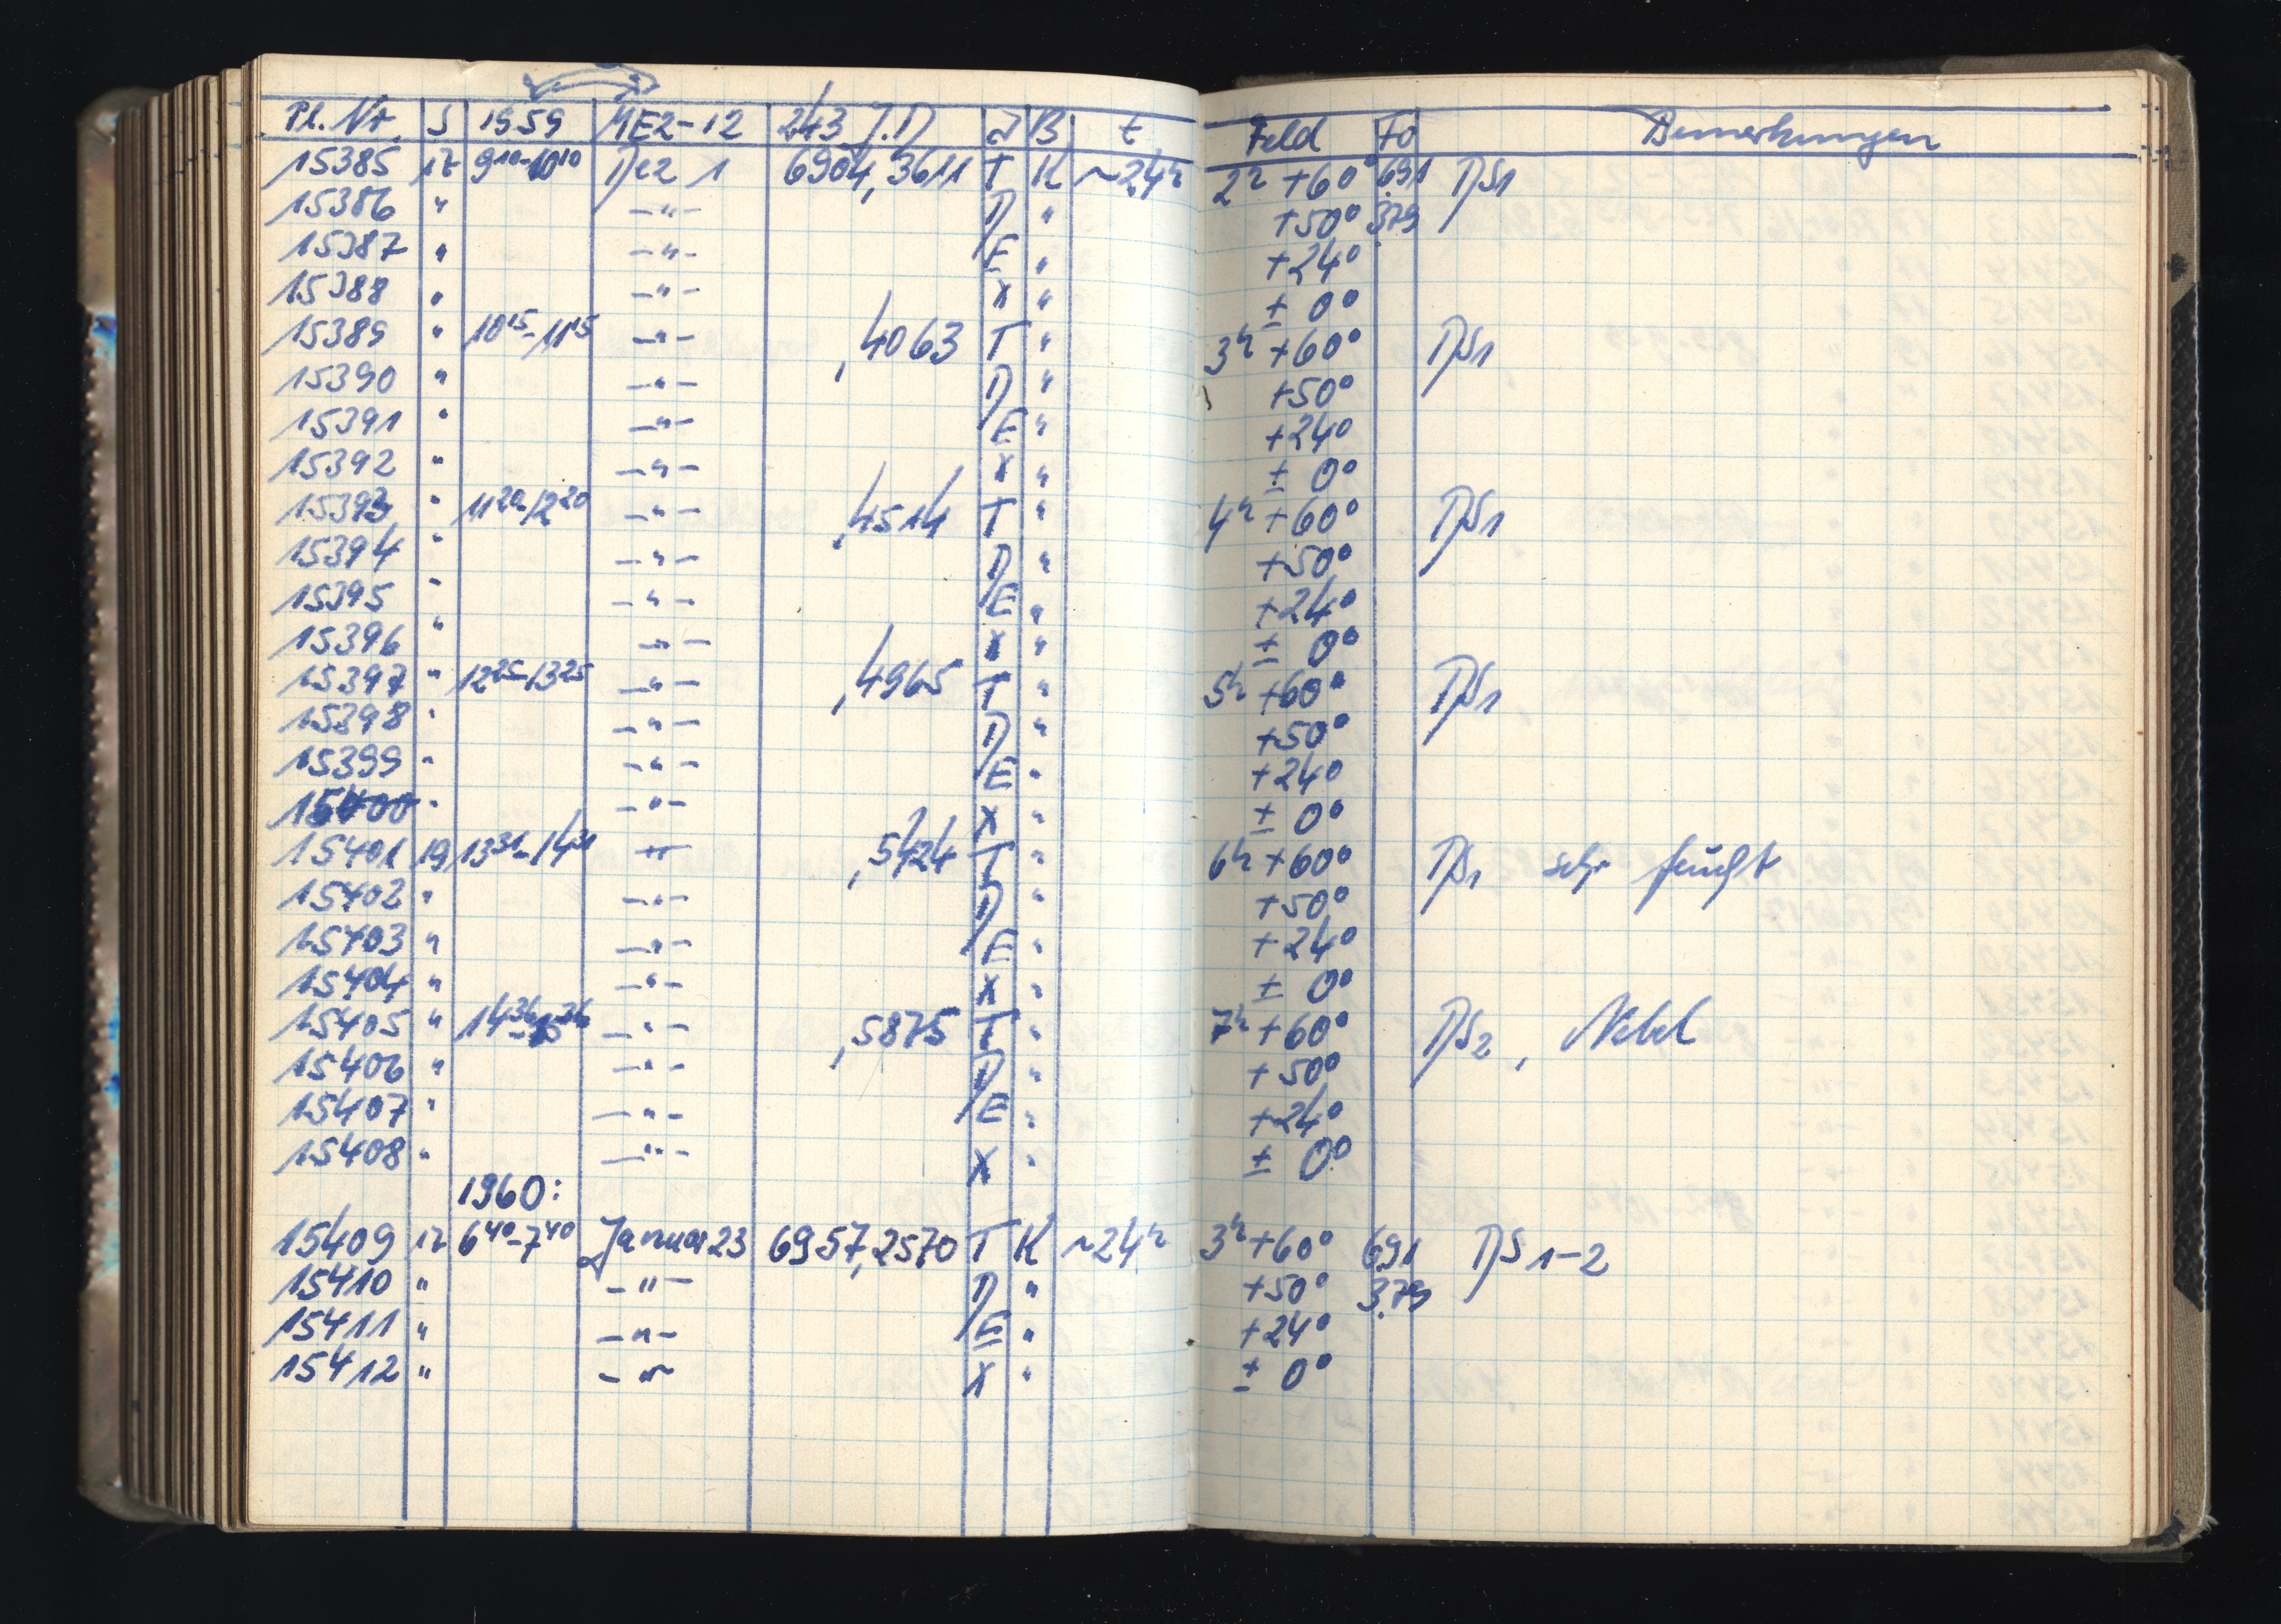 Pl. Nr. S 1959 MEZ-12 243 J.D. J B t Feld Fo Bemerkungen
15385 17 9¹⁰-10¹⁰ Dez 1 6904,3611 T K ~24ʰ 2ʰ +60° 691 DS1
15386 " —"— D " +50° 379
15387 " —"— E " +24°
15388 " —"— X " ± 0°
15389 " 10¹⁵-11¹⁵ —"— ,4063 T " 3ʰ +60° DS1
15390 " —"— D " +50°
15391 " —"— E " +24°
15392 " —"— X " ± 0°
15393 " 11²⁰-12²⁰ —"— ,4514 T " 4ʰ +60° DS1
15394 " —"— D " +50°
15395 " —"— E " +24°
15396 " —"— X " ± 0°
15397 " 12²⁵-13²⁵ —"— ,4965 T " 5ʰ +60° DS1
15398 " —"— D " +50°
15399 " —"— E " +24°
15400 " —"— X " ± 0°
15401 19 13³¹-14³¹ —"— ,5424 T " 6ʰ +60° DS1 sehr feucht
15402 " —"— D " +50°
15403 " —"— E " +24°
15404 " —"— X " ± 0°
15405 " 14³⁶-15³⁶ —"— ,5875 T " 7ʰ +60° DS2, Nebel
15406 " —"— D " +50°
15407 " —"— E " +24°
15408 " —"— X " ± 0°
1960:
15409 17 6⁴⁰-7⁴⁰ Januar 23 6957,2570 T K ~24ʰ 3ʰ +60° 691 DS 1-2
15410 " —"— D " +50° 379
15411 " —"— E " +24°
15412 " —"— X " ± 0°